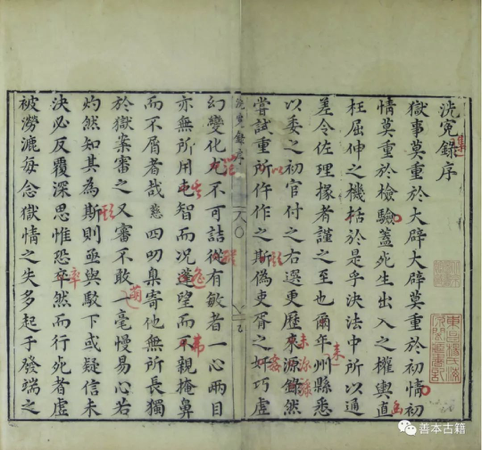 洗冤錄序
獄事莫重於大辟大辟莫重於初情初
情莫重於檢驗蓋死生出入之權輿直
枉屈伸之機栝於是乎決法中所以通
差令佐理掾者謹之至也爾年州縣悉
以委之初官付之右選更歷來源錄然
嘗試重所仵作之斯偽吏胥之奸巧虛
洗冤錄序
幻變化尤不可詰從有敏者一心兩目
亦無所用屯智而况蓬望而不親掩鼻
而不屑者哉慈四叨臬寄他無所長獨
於獄案審之又審不敢一毫慢易心若
灼然知其為斯則亟與駁下或疑信未
決必反覆深思惟恐卒然而行死者虛
被澇漉每念獄情之失多起于發端之
善本古籍